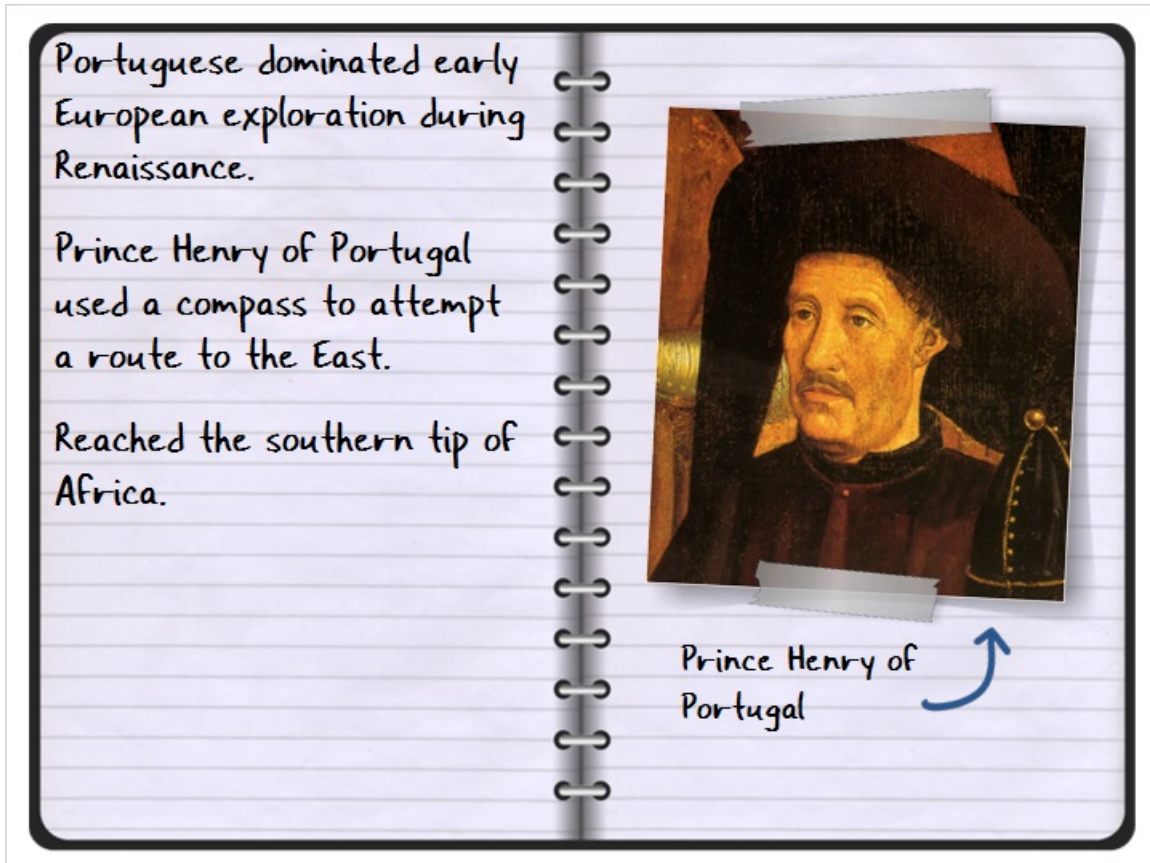 Portuguese dominated early
European exploration during
Renaissance.
Prince Henry of Portugal
used a compass to attempt
a route to the East.
Reached the southern tip of
Africa.
Prince Henry of
Portugal